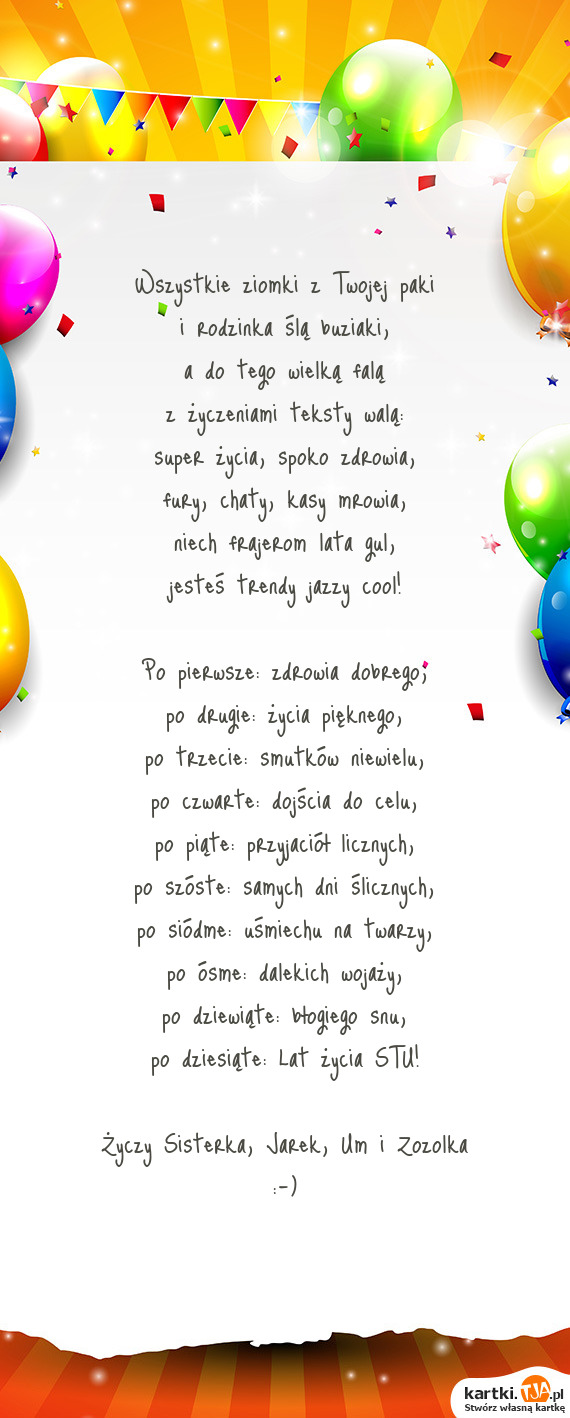 Wszystkie ziomki z Twojej paki
i rodzinka ślą buziaki,
a do tego wielką falą
z życzeniami teksty walą:
super życia, spoko zdrowia,
fury, chaty, kasy mrowia,
niech frajerom lata gul,
jesteś trendy jazzy cool!
Po pierwsze: zdrowia dobrego,
po drugie: życia pięknego,
po trzecie: smutków niewielu,
po czwarte: dojścia do celu,
po piąte: przyjaciół licznych,
po szóste: samych dni ślicznych,
po siódme: uśmiechu na twarzy,
po ósme: dalekich wojaży,
po dziewiąte: błogiego snu,
po dziesiąte: Lat życia STU!
Życzy Sisterka, Jarek, Um i Zozolka
:-)
kartki.TJA.pl
Stwórz własną kartkę